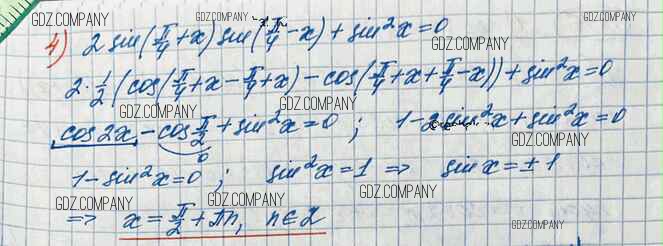 GDZ.COMPANY GDZ.COMPANY GDZ.COMPANY
4) 2 sin(π/4 + x) sin(π/4 - x) + sin²x = 0
GDZ.COMPANY
2 · 1/2 (cos(π/4 + x - π/4 + x) - cos(π/4 + x + π/4 - x)) + sin²x = 0
GDZ.COMPANY GDZ.COMPANY
cos 2x - cos π/2 + sin²x = 0 ; 1 - 2 sin²x + sin²x = 0
0
GDZ.COMPANY GDZ.COMPANY
1 - sin²x = 0 ; sin²x = 1 => sin x = ± 1
GDZ.COMPANY GDZ.COMPANY GDZ.COMPANY
=> x = π/2 + πn, n ∈ Z
GDZ.COMPANY